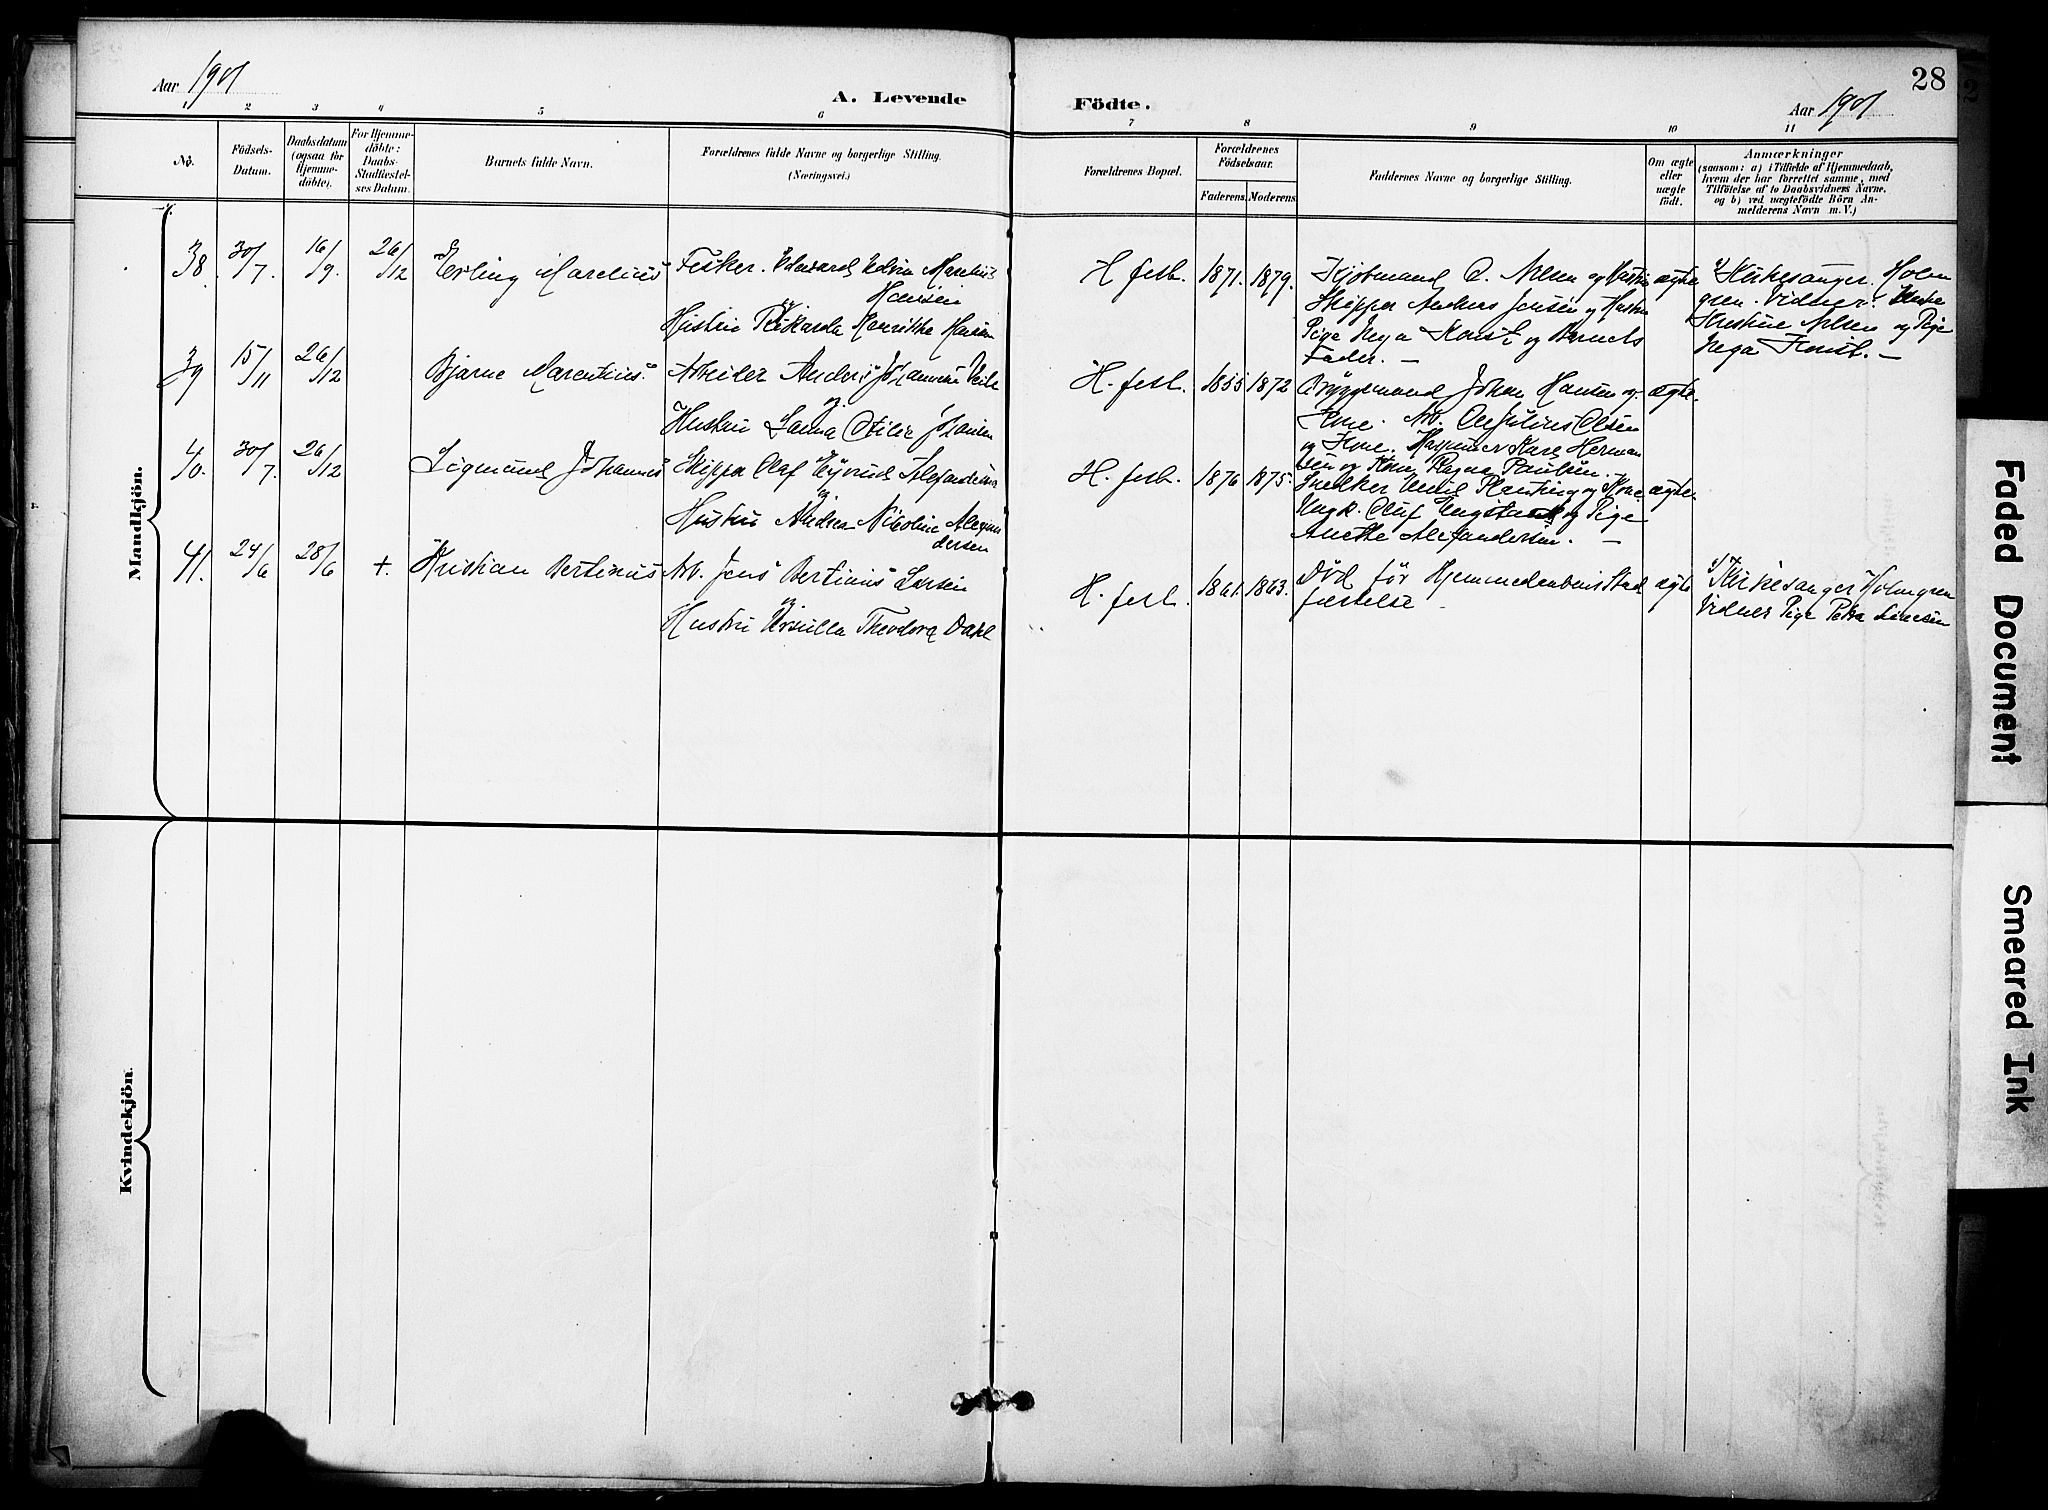 Aar 1901
A. Levende
Födte.
Aar 1901
28
1 2 3 4 5 6 7 8 9 10 11
No.
Födsels-
Datum.
Daabsdatum
(ogsaa for
Hjemme-
döbte).
For Hjemme-
döbte:
Daabs-
Stadfæstel-
ses Datum.
Barnets fulde Navn.
Forældrenes fulde Navne og borgerlige Stilling.
(Næringsvei.)
Forældrenes Bopæl.
Forældrenes
Födselsaar.
Faderens. Moderens.
Faddernes Navne og borgerlige Stilling.
Om ægte
eller
uægte
født.
Anmærkninger
(saasom: a) i Tilfælde af Hjemmedaab,
hvem der har forrettet samme, med
Tilføielse af to Daabsvidners Navne,
og b) ved uægtefödte Börn An-
melderens Navn m. V.)
Mandkjön.
38. 30/7. 16/9. 26/12 Erling Marelius Fisker. Edvard Edvin Marelius
Hansen
og
Hustru Rikarda Henrikke Hansen
H. fest. 1871. 1879. Kjøbmand O. Nilsen og Hustru
Skipper Anders Jensen og Hustru
Pige Inga og Barnets
Fader. —
ægte
Kirkesanger Holm
gren. Vidner:
Kristine Nilsen og Pige
Inga
39 15/11 26/12 Bjarne Marentius. Arbeider Anders Johannes
og
Hustru Otilie
H. fest. 1855 1872 Bryggemand Johan Hansen og
Kone. Arb. Ole Julius Olsen
og Kone. Karl Herman
sen og Kone Ragna Paulsen.
ægte.
40. 30/7. 26/12 Sigmund Johannes Skipper Olaf
og
Hustru Andrea Nicoline Alexan
dersen
H. fest. 1876 1875. Snedker Plantin og Kone.
Ungk. Oluf og Pige
Anette Alexandersen. —
ægte.
41. 24/6 28/6 +. Kristian Bertinus Arb. Jens Bertinius Larsen
og
Hustru Ursulla Theodora Dahl
H. fest. 1861. 1863. Død før Hjemmedaabens Stad
fæstelse —
ægte
Kirkesanger Holmgren
Vidner Pige Petra
Kvindekjön.
Faded Document
Smeared Ink